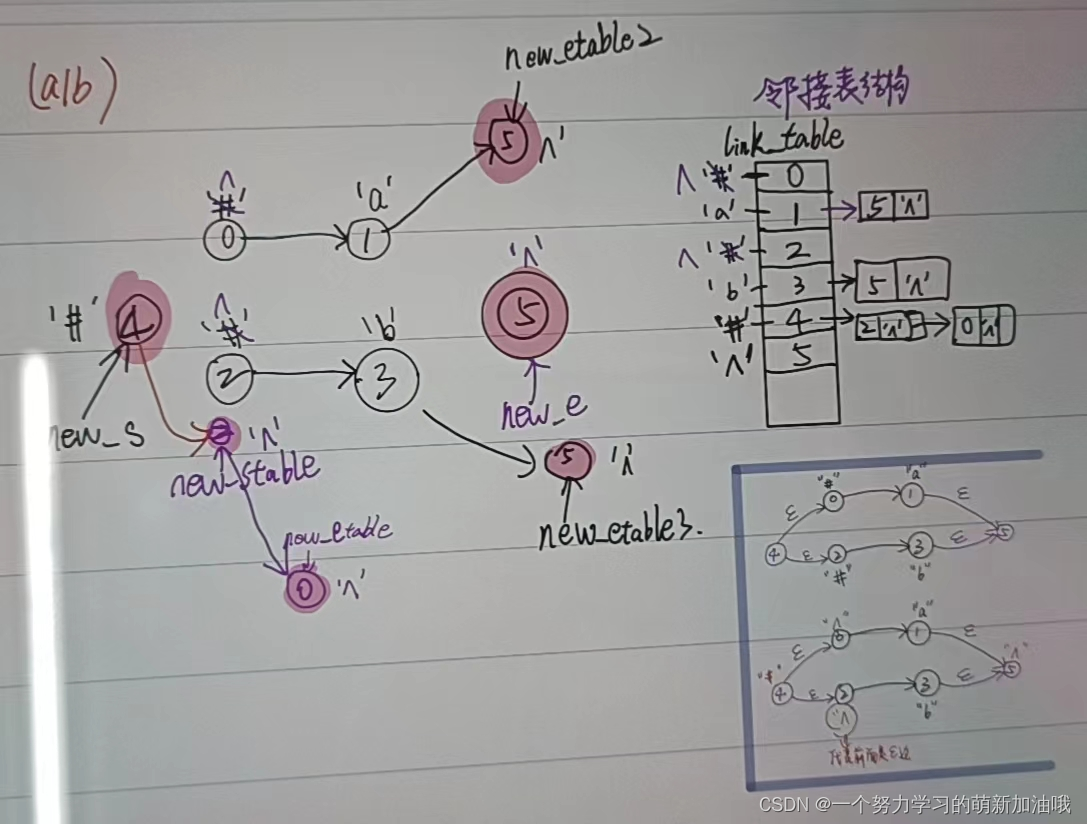 (a|b)
new_etable2
5
'Λ'
Λ
'#'
0
'a'
1
'#'
4
new_s
Λ
'#'
2
'b'
3
'Λ'
5
new_e
2
'Λ'
new_stable
new_etable
0
'Λ'
5
'Λ'
new_etable3.
邻接表结构
link_table
Λ '#' 0
'a' 1 5 'Λ'
Λ '#' 2
'b' 3 5 'Λ'
'#' 4 2 'Λ' 0 Λ
'Λ' 5
"#" "a"
ε 0 1 ε
4 5
ε 2 3 ε
"#" "b"
"Λ" "a"
ε 0 1 ε
"#" "Λ"
4 ε 2 3 ε 5
"Λ" "b"
CSDN @一个努力学习的萌新加油哦